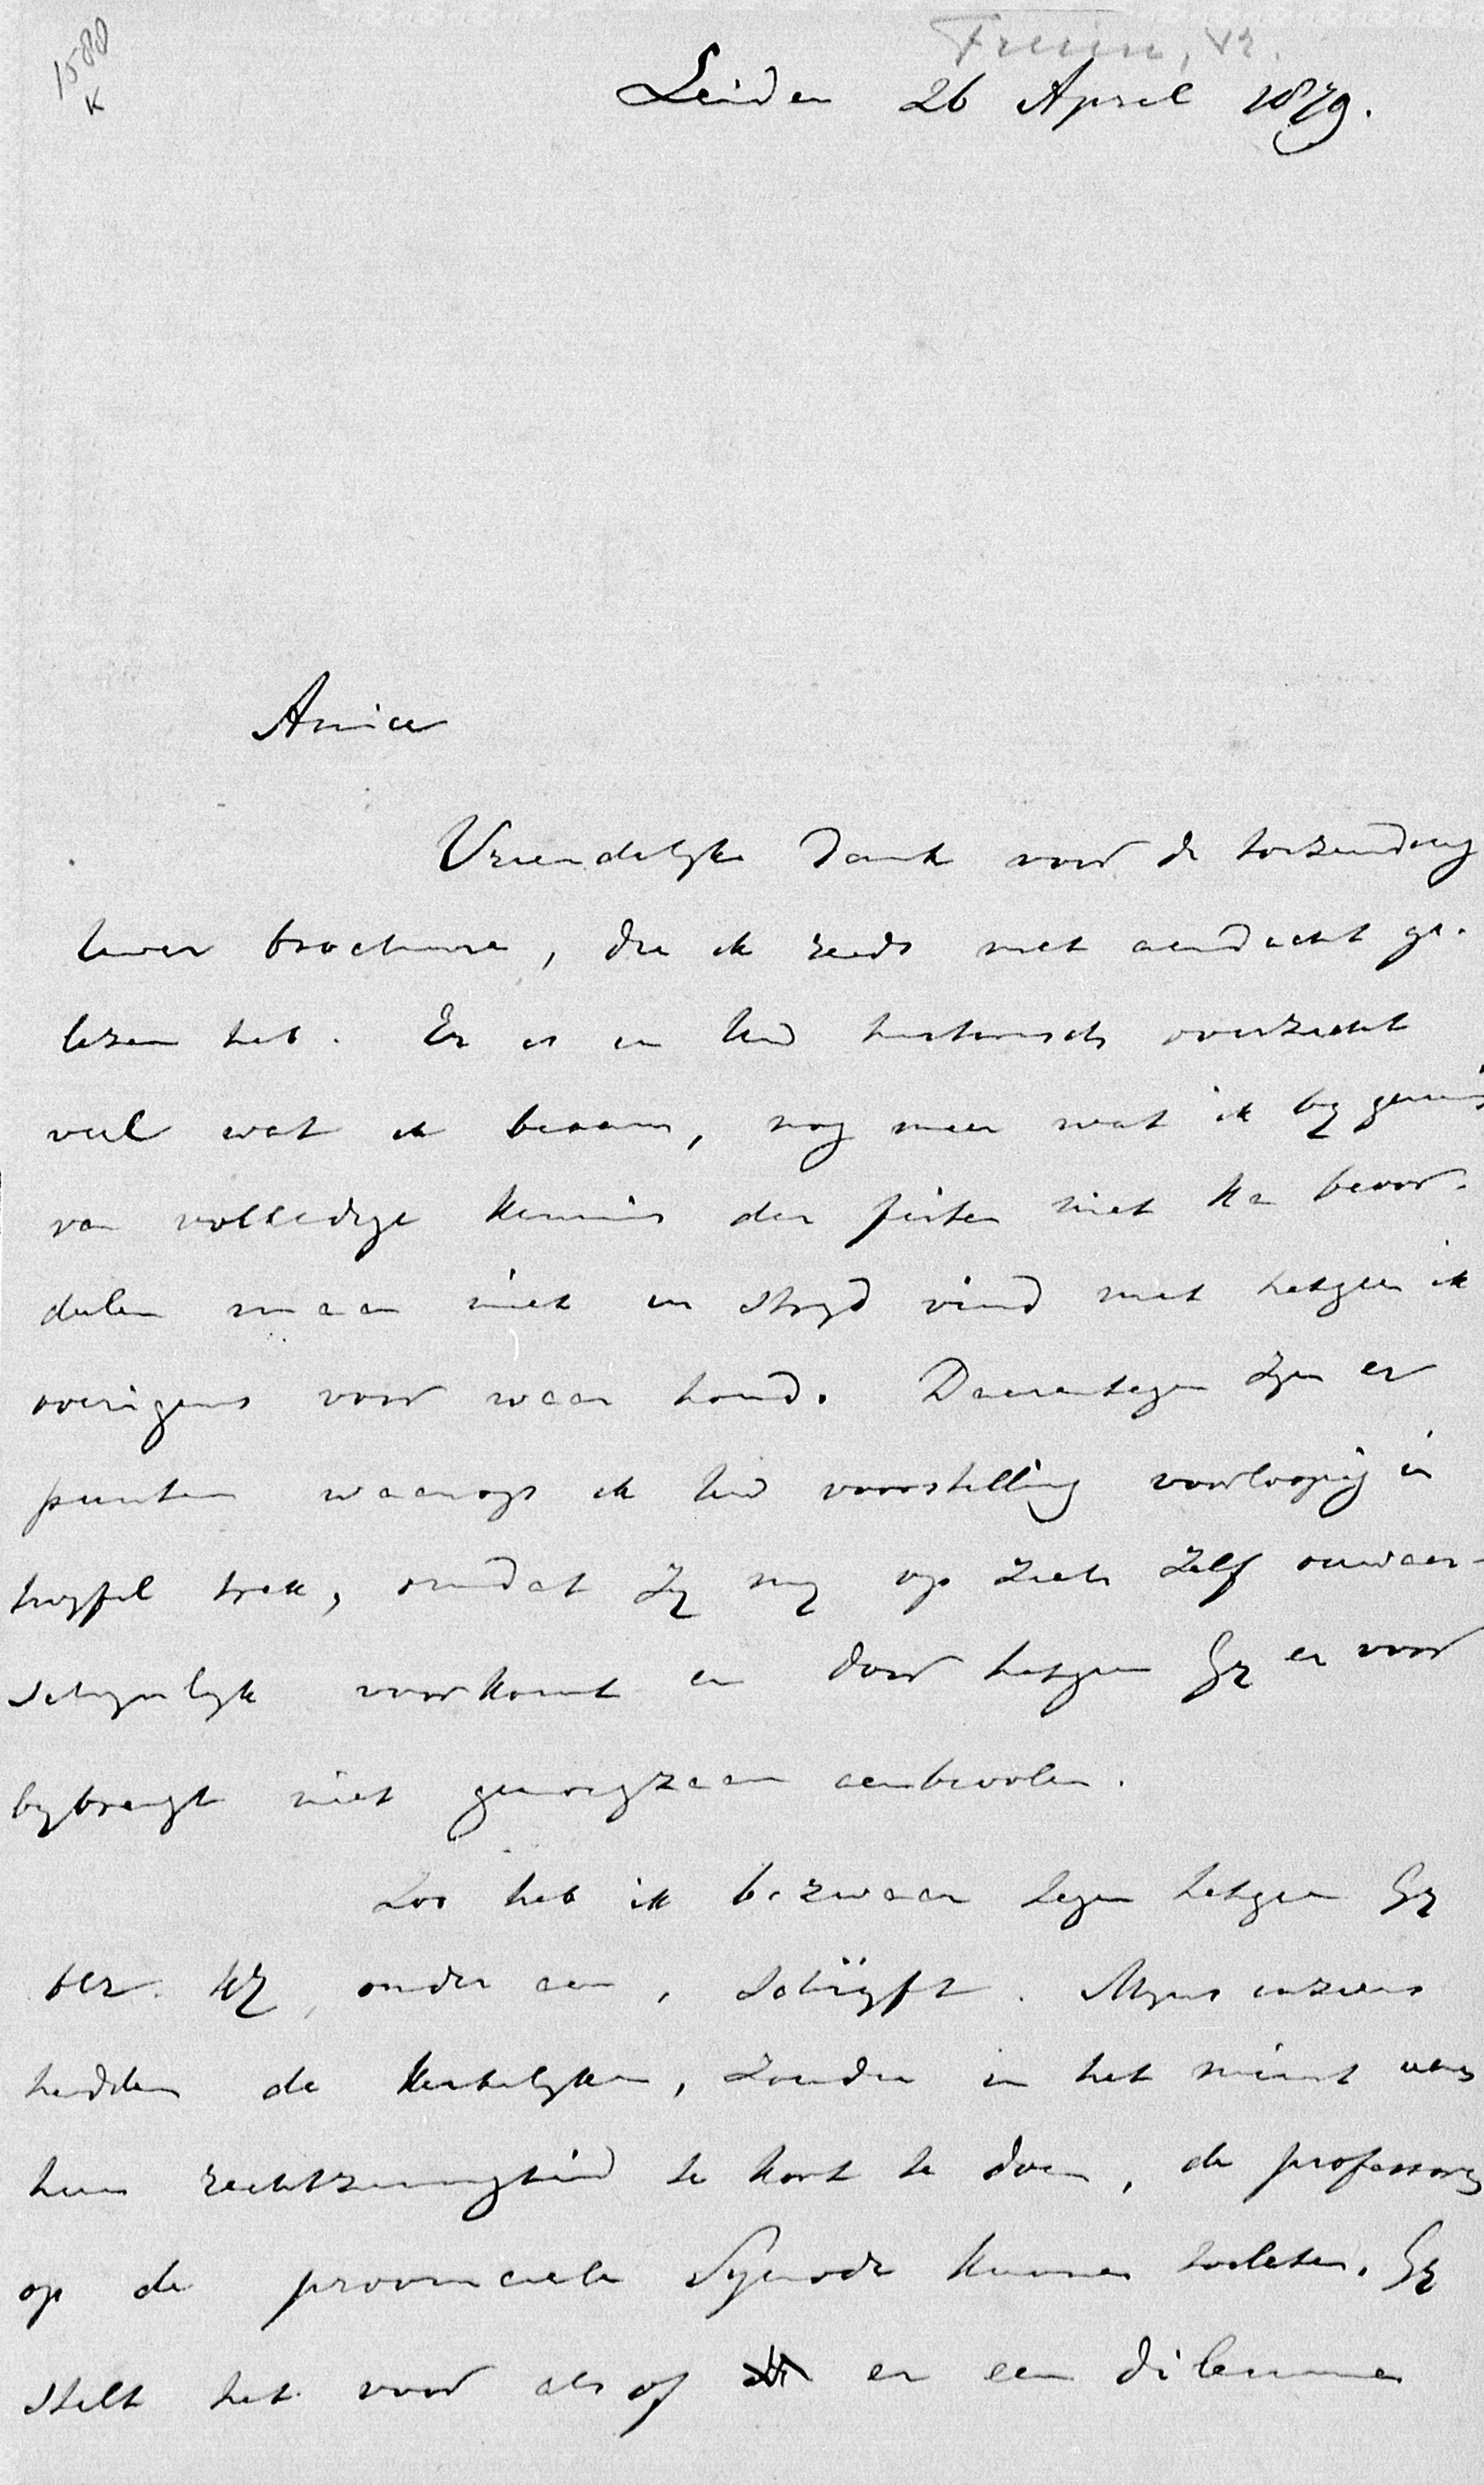 1580
K
Fruin, R.
Leiden 26 April 1879.
Amice
Vriendelijke dank voor de toezending
Uwer brochure, die ik reeds met aandacht ge-
lezen heb. Er is in Uw historisch overzicht
veel wat ik beaam, nog meer wat ik bij gemis
van volledige kennis der feiten niet kan beoor-
deelen maar niet in strijd vind met hetgeen ik
overigens voor waar houd. Daarentegen zijn er
punten waarop ik Uw voorstelling voorloopig in
twijfel trek, omdat zij mij op zich zelf onwaar-
schijnlijk voorkomt en door hetgeen Gij er voor
bijbrengt niet genoegzaam aanbevolen.
Zoo heb ik bezwaar tegen hetgeen Gij
blz. onder aan, schrijft. Mijns inziens
hadden de kerkelijken, zonder in het minst aan
hun rechtzinnigheid te kort te doen, de professors
op de provinciale Synode kunnen toelaten. Gij
stelt het voor als of er een dilemma